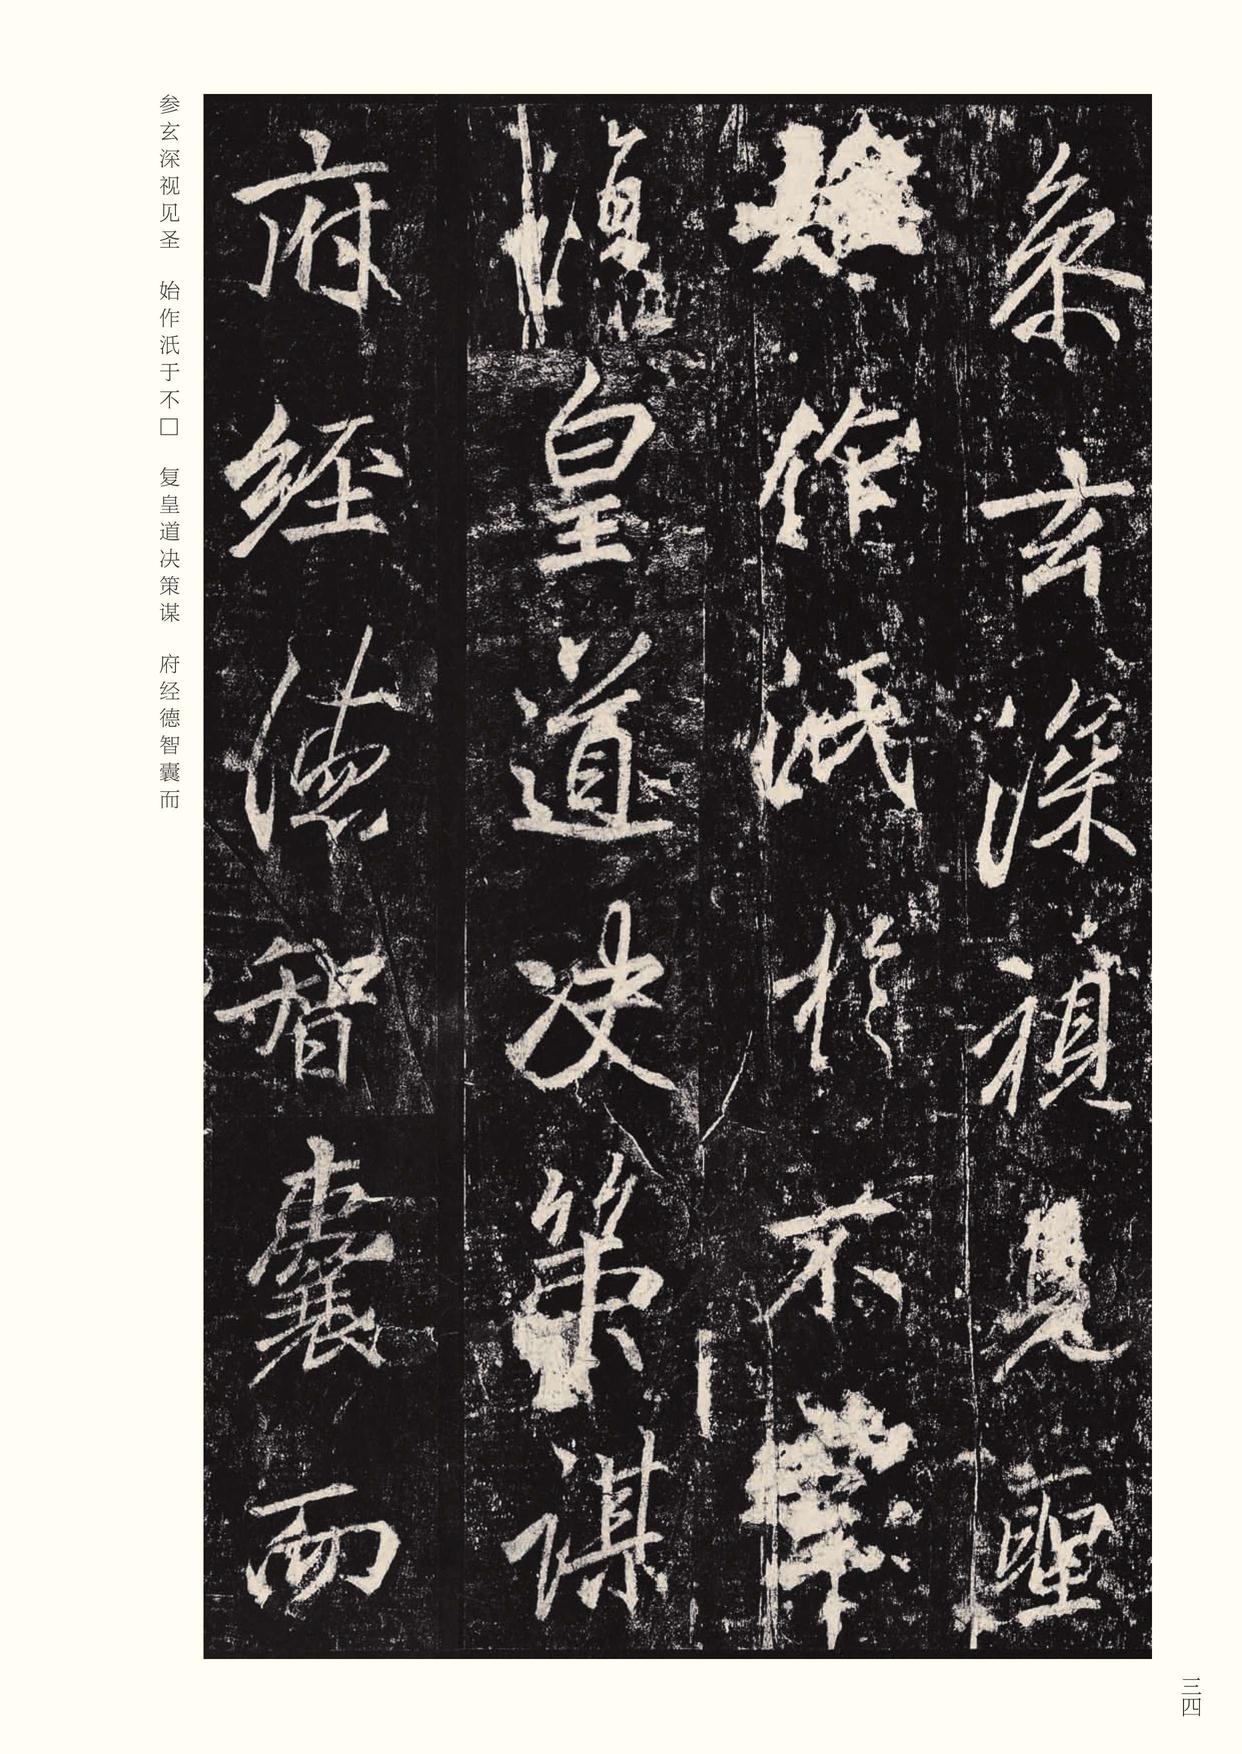 参玄深視見聖
始作汦於不
復皇道決策謀
府經德智囊而
参玄深视见圣 始作汦于不□ 复皇道决策谋 府经德智囊而
三四